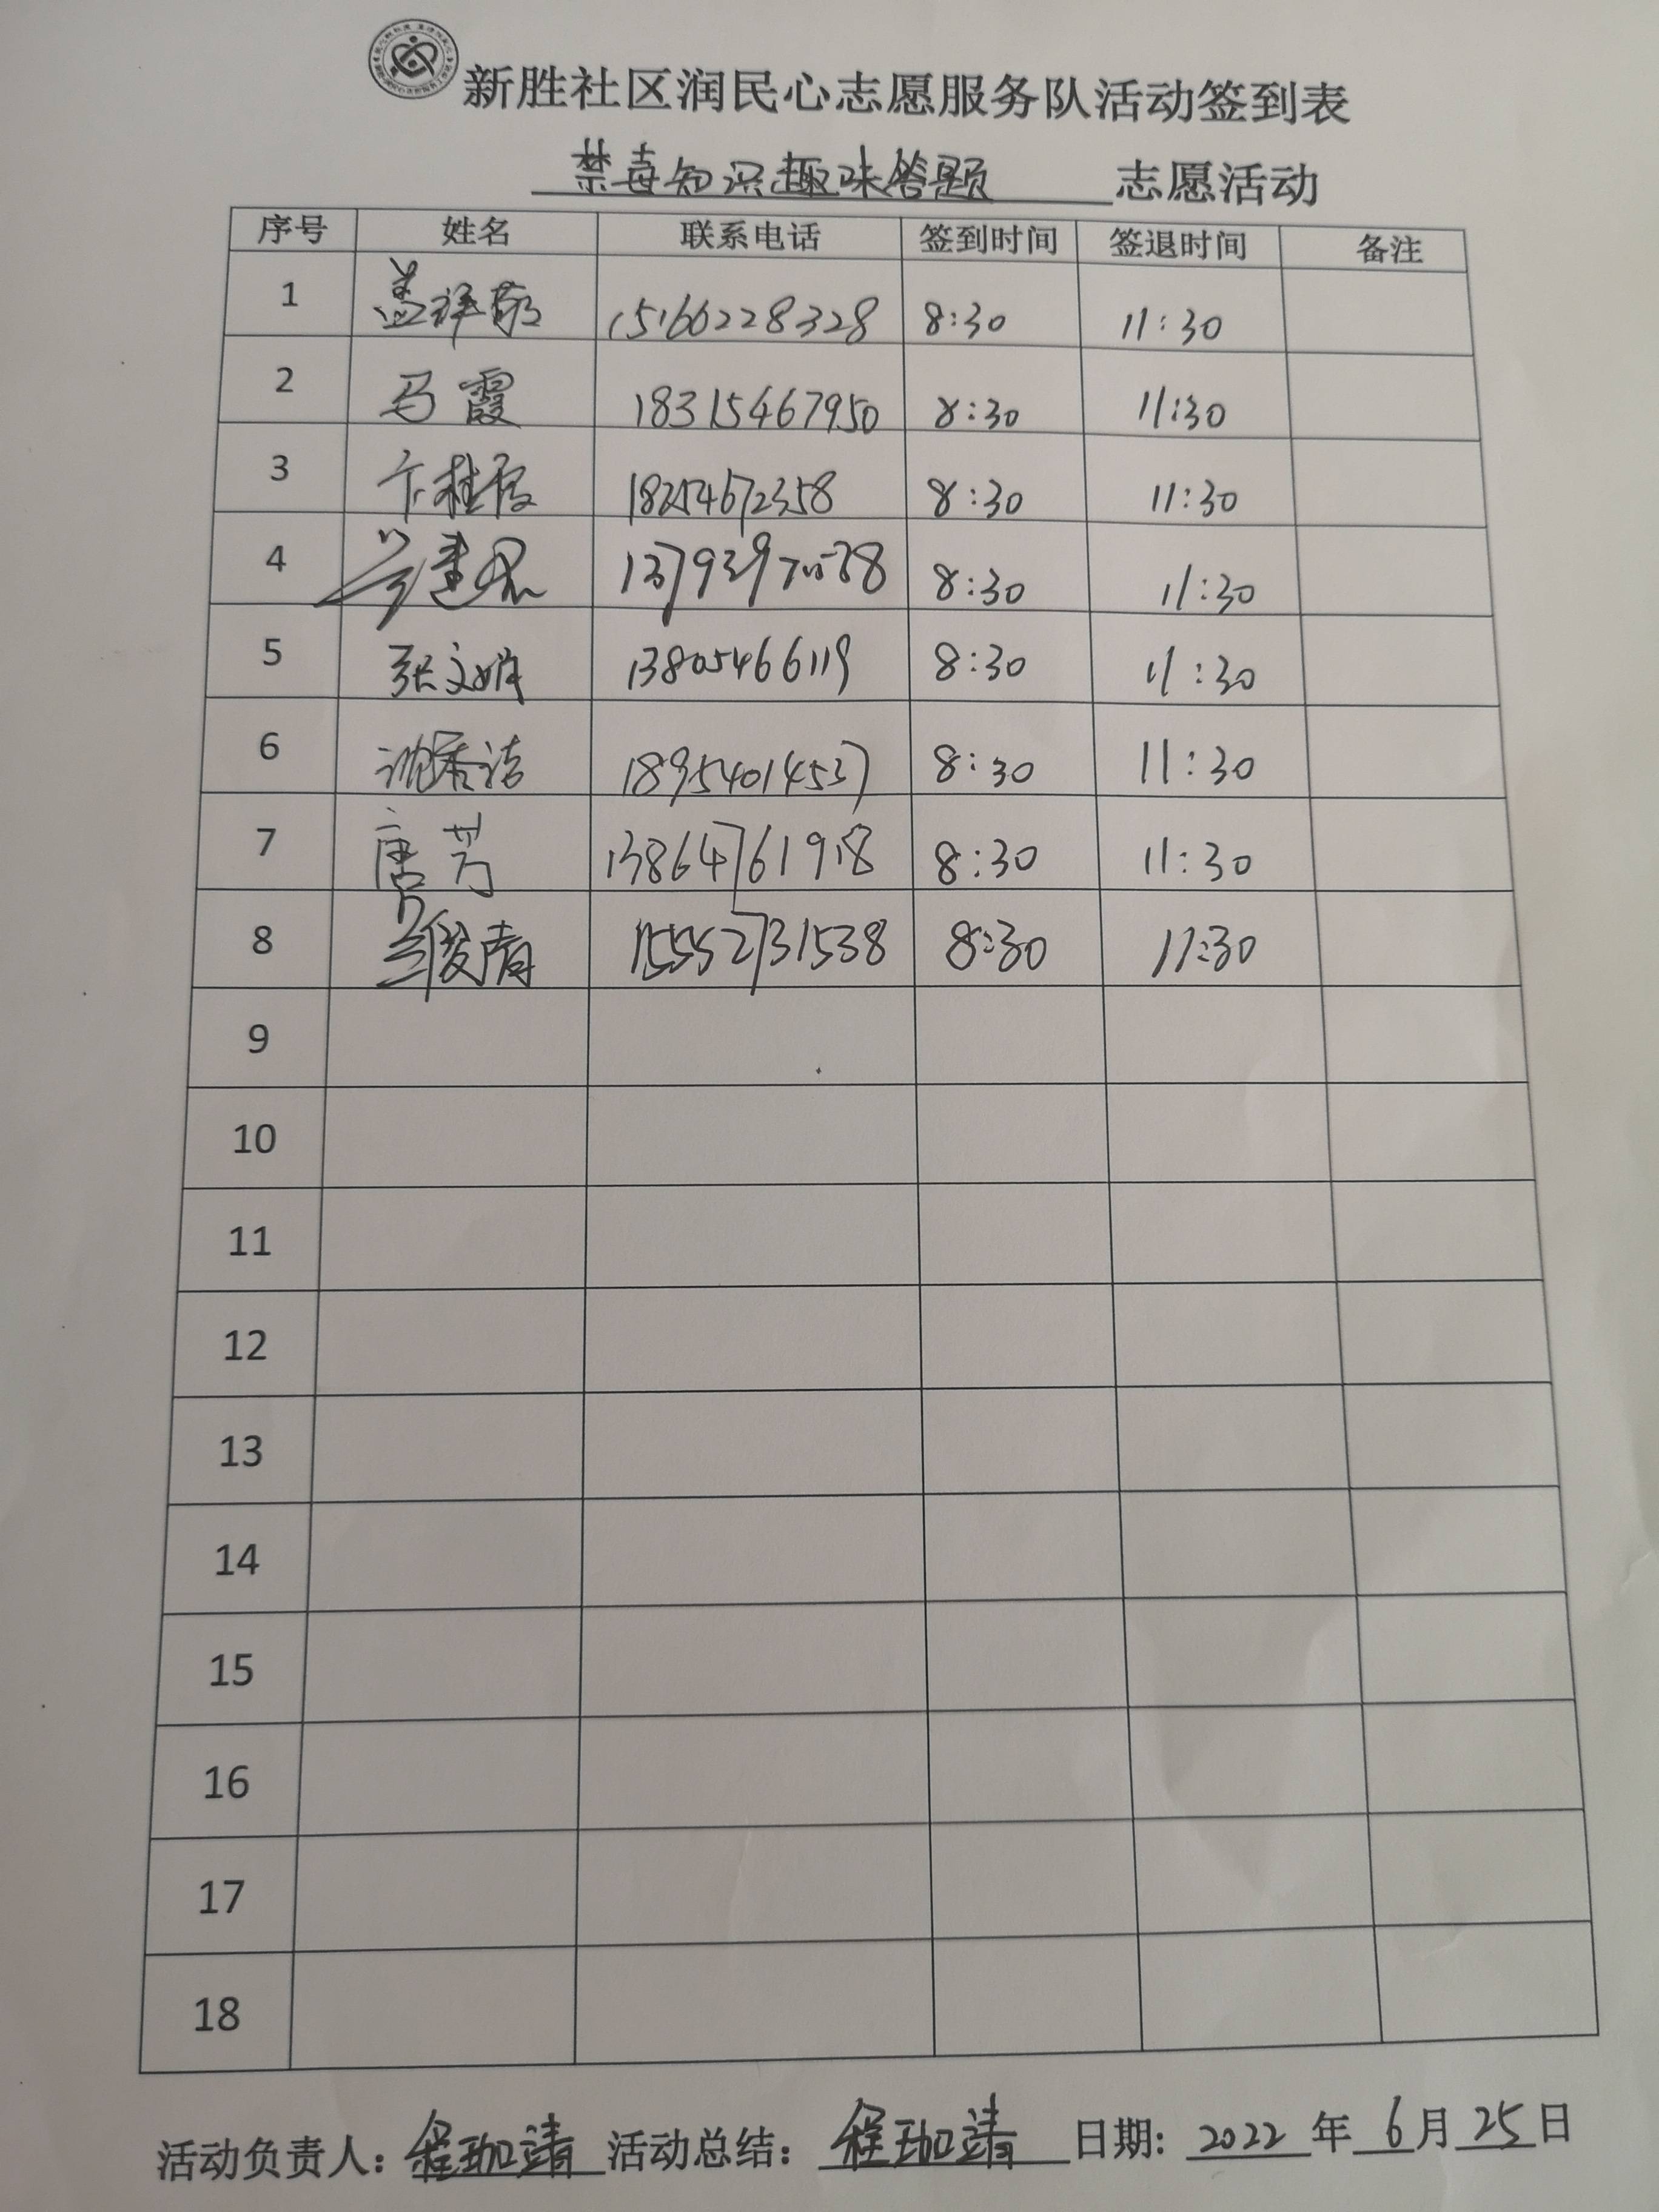 新胜社区润民心志愿服务队活动签到表
禁毒知识趣味答题 志愿活动
序号 姓名 联系电话 签到时间 签退时间 备注
1 盖祥 15166228328 8:30 11:30
2 马霞 18315467950 8:30 11:30
3 卞桂霞 18254672358 8:30 11:30
4 8:30 11:30
5 张文娟 13805466119 8:30 11:30
6 沈秀洁 18954014537 8:30 11:30
7 唐芳 13864761918 8:30 11:30
8 兰俊青 15552731538 8:30 11:30
9
10
11
12
13
14
15
16
17
18
活动负责人: 程珈靖 活动总结: 程珈靖 日期: 2022 年 6 月 25 日